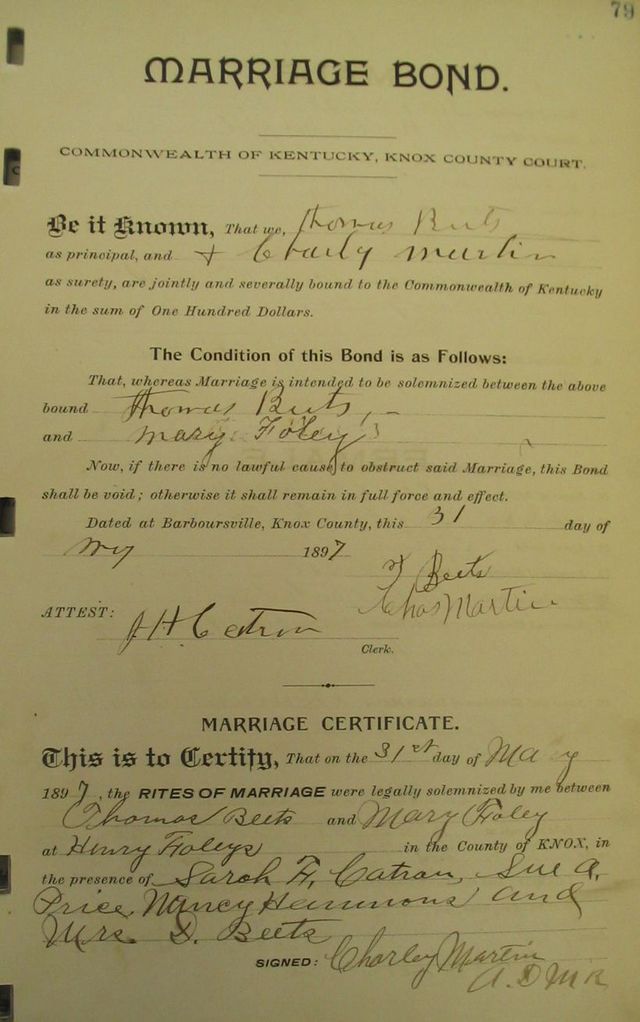 79
MARRIAGE BOND.
COMMONWEALTH OF KENTUCKY, KNOX COUNTY COURT.
Be it Known, That we, Thomas Beets
as principal, and + Charly Martin
as surety, are jointly and severally bound to the Commonwealth of Kentucky
in the sum of One Hundred Dollars.
The Condition of this Bond is as Follows:
That, whereas Marriage is intended to be solemnized between the above
bound Thomas Beets,
and Mary Foley
Now, if there is no lawful cause to obstruct said Marriage, this Bond
shall be void; otherwise it shall remain in full force and effect.
Dated at Barboursville, Knox County, this 31 day of
My 1897
Beets
Chas Martin
ATTEST:
J H Catron
Clerk.
MARRIAGE CERTIFICATE.
This is to Certify, That on the 31st day of May
1897, the RITES OF MARRIAGE were legally solemnized by me between
Thomas Beets and Mary Foley
at Henry Foleys in the County of KNOX, in
the presence of Sarah F. Catron, Sue A.
Price, Nancy Hammons and
Mrs. D. Beets
SIGNED: Charley Martin